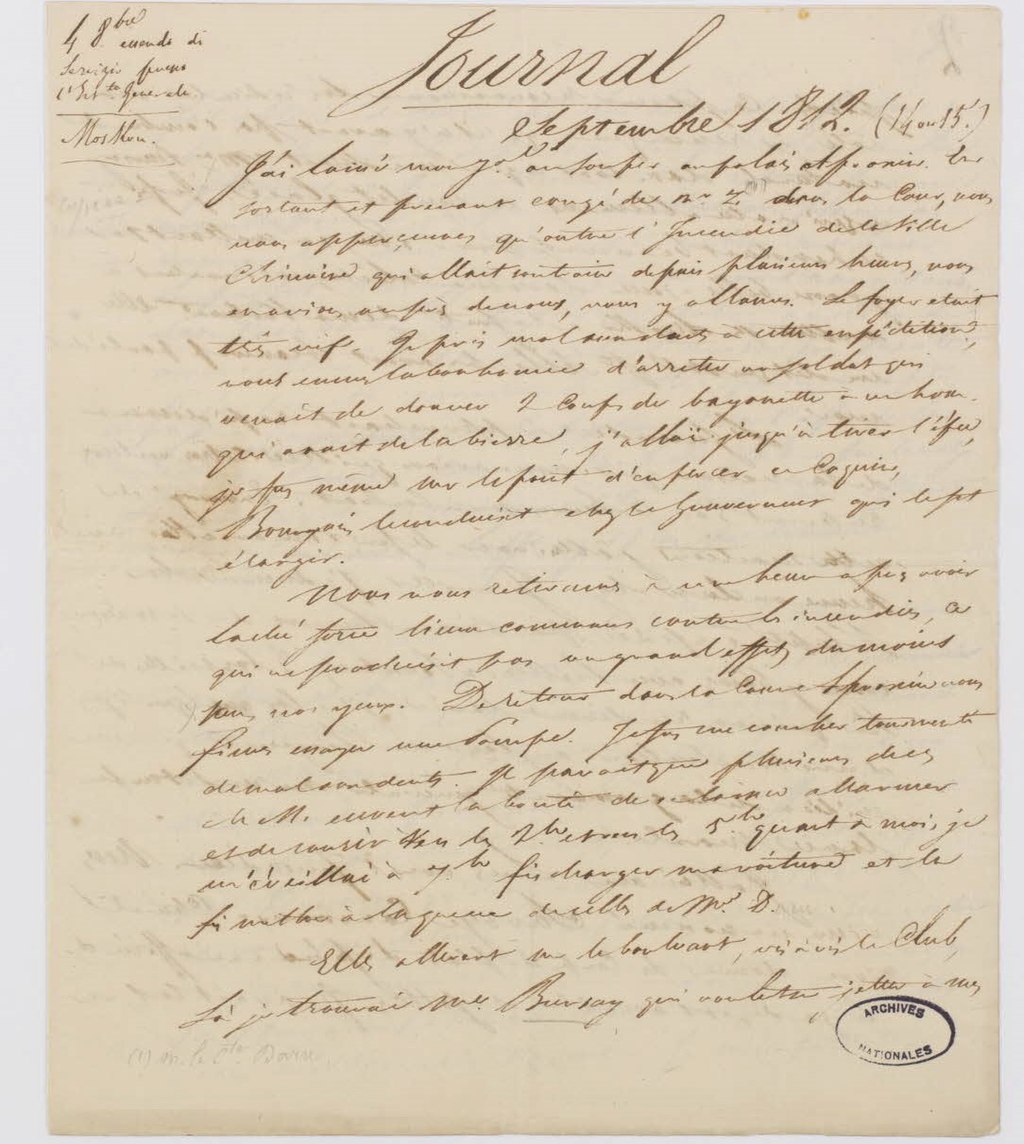 4 8bre essendo di
Servizio presso
l'Int.te Generale
Moskou.
Journal
Septembre 1812. (14 ou 15.)
J'ai laissé mon gal au souper au palais Apraxin. En
sortant et prenant congé de Mr Z (1) dans la Cour, nous
nous apperçumes qu'outre l'Incendie de la ville
Chinoise qui allait son train depuis plusieurs heures, nous
en avions auprès de nous, nous y allames. Le foyer était
très vif. Je pris mal aux dents à cette expédition,
nous eumes la bonhomie d'arreter un soldat qui
venait de donner 2 coups de bayonette à un hom.
qui avait de la bierre, j'allai jusqu'à tirer l'épée,
je fus même sur le point d'en percer ce Coquin,
Bourgeois le conduisit chez le Gouverneur qui le fit
élargir.
Nous nous retirames à une heure après avoir
laché force lieux communs contre les incendies, ce
qui ne produisit pas un grand effet, du moins
pour nos yeux. De retour dans la Cour Apraxin nous
fimes essayer une Pompe. Je fus me coucher tourmenté
du mal aux dents. Il parait que plusieurs de ces
MM. eurent la bonté de se laisser allarmer
et de courir vers les 2h. et vers les 5h. quant à moi, je
m'éveillai à 7h fis charger ma voiture et la
fis mettre à la queue de celles de Mr. D.
Elles allerent sur le boulevart, vis à vis le Club,
Là je trouvai Me Bursay qui voulut se jetter à mes
(1) M. le Cte
ARCHIVES
NATIONALES